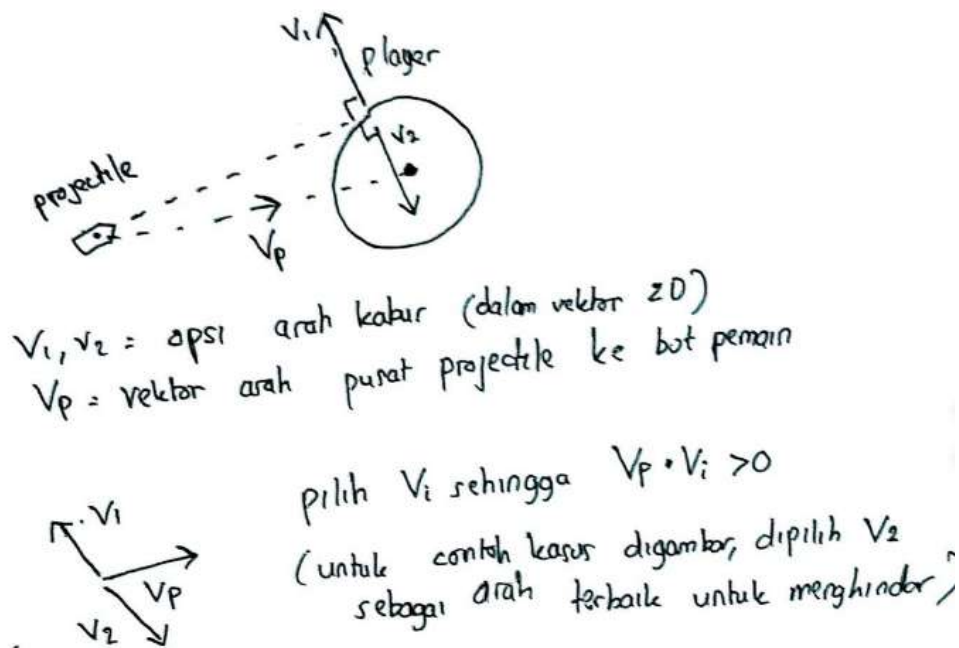 V₁
player
V₂
projectile
Vp
V₁, V₂ = opsi arah kabur (dalam vektor 2D)
Vp = vektor arah pusat projectile ke bot pemain
pilih Vi sehingga Vp • Vi > 0
(untuk contoh kasus digambar, dipilih V₂
sebagai arah terbaik untuk menghindar)
V₁
Vp
V₂